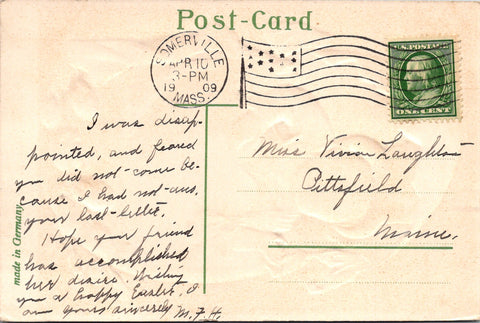 Post-Card
SOMERVILLE
APR 10
3-PM
1909
MASS.
U.S. POSTAGE
ONE CENT
I was disap-
pointed, and feared
you did not come be-
cause I had not ans.
your last letter.
Hope your friend
has accomplished
her desire. Wishing
you a happy Easter, I
am yours sincerely M. F. H.
Miss Vivian Laughton
Pittsfield
Maine.
made in Germany